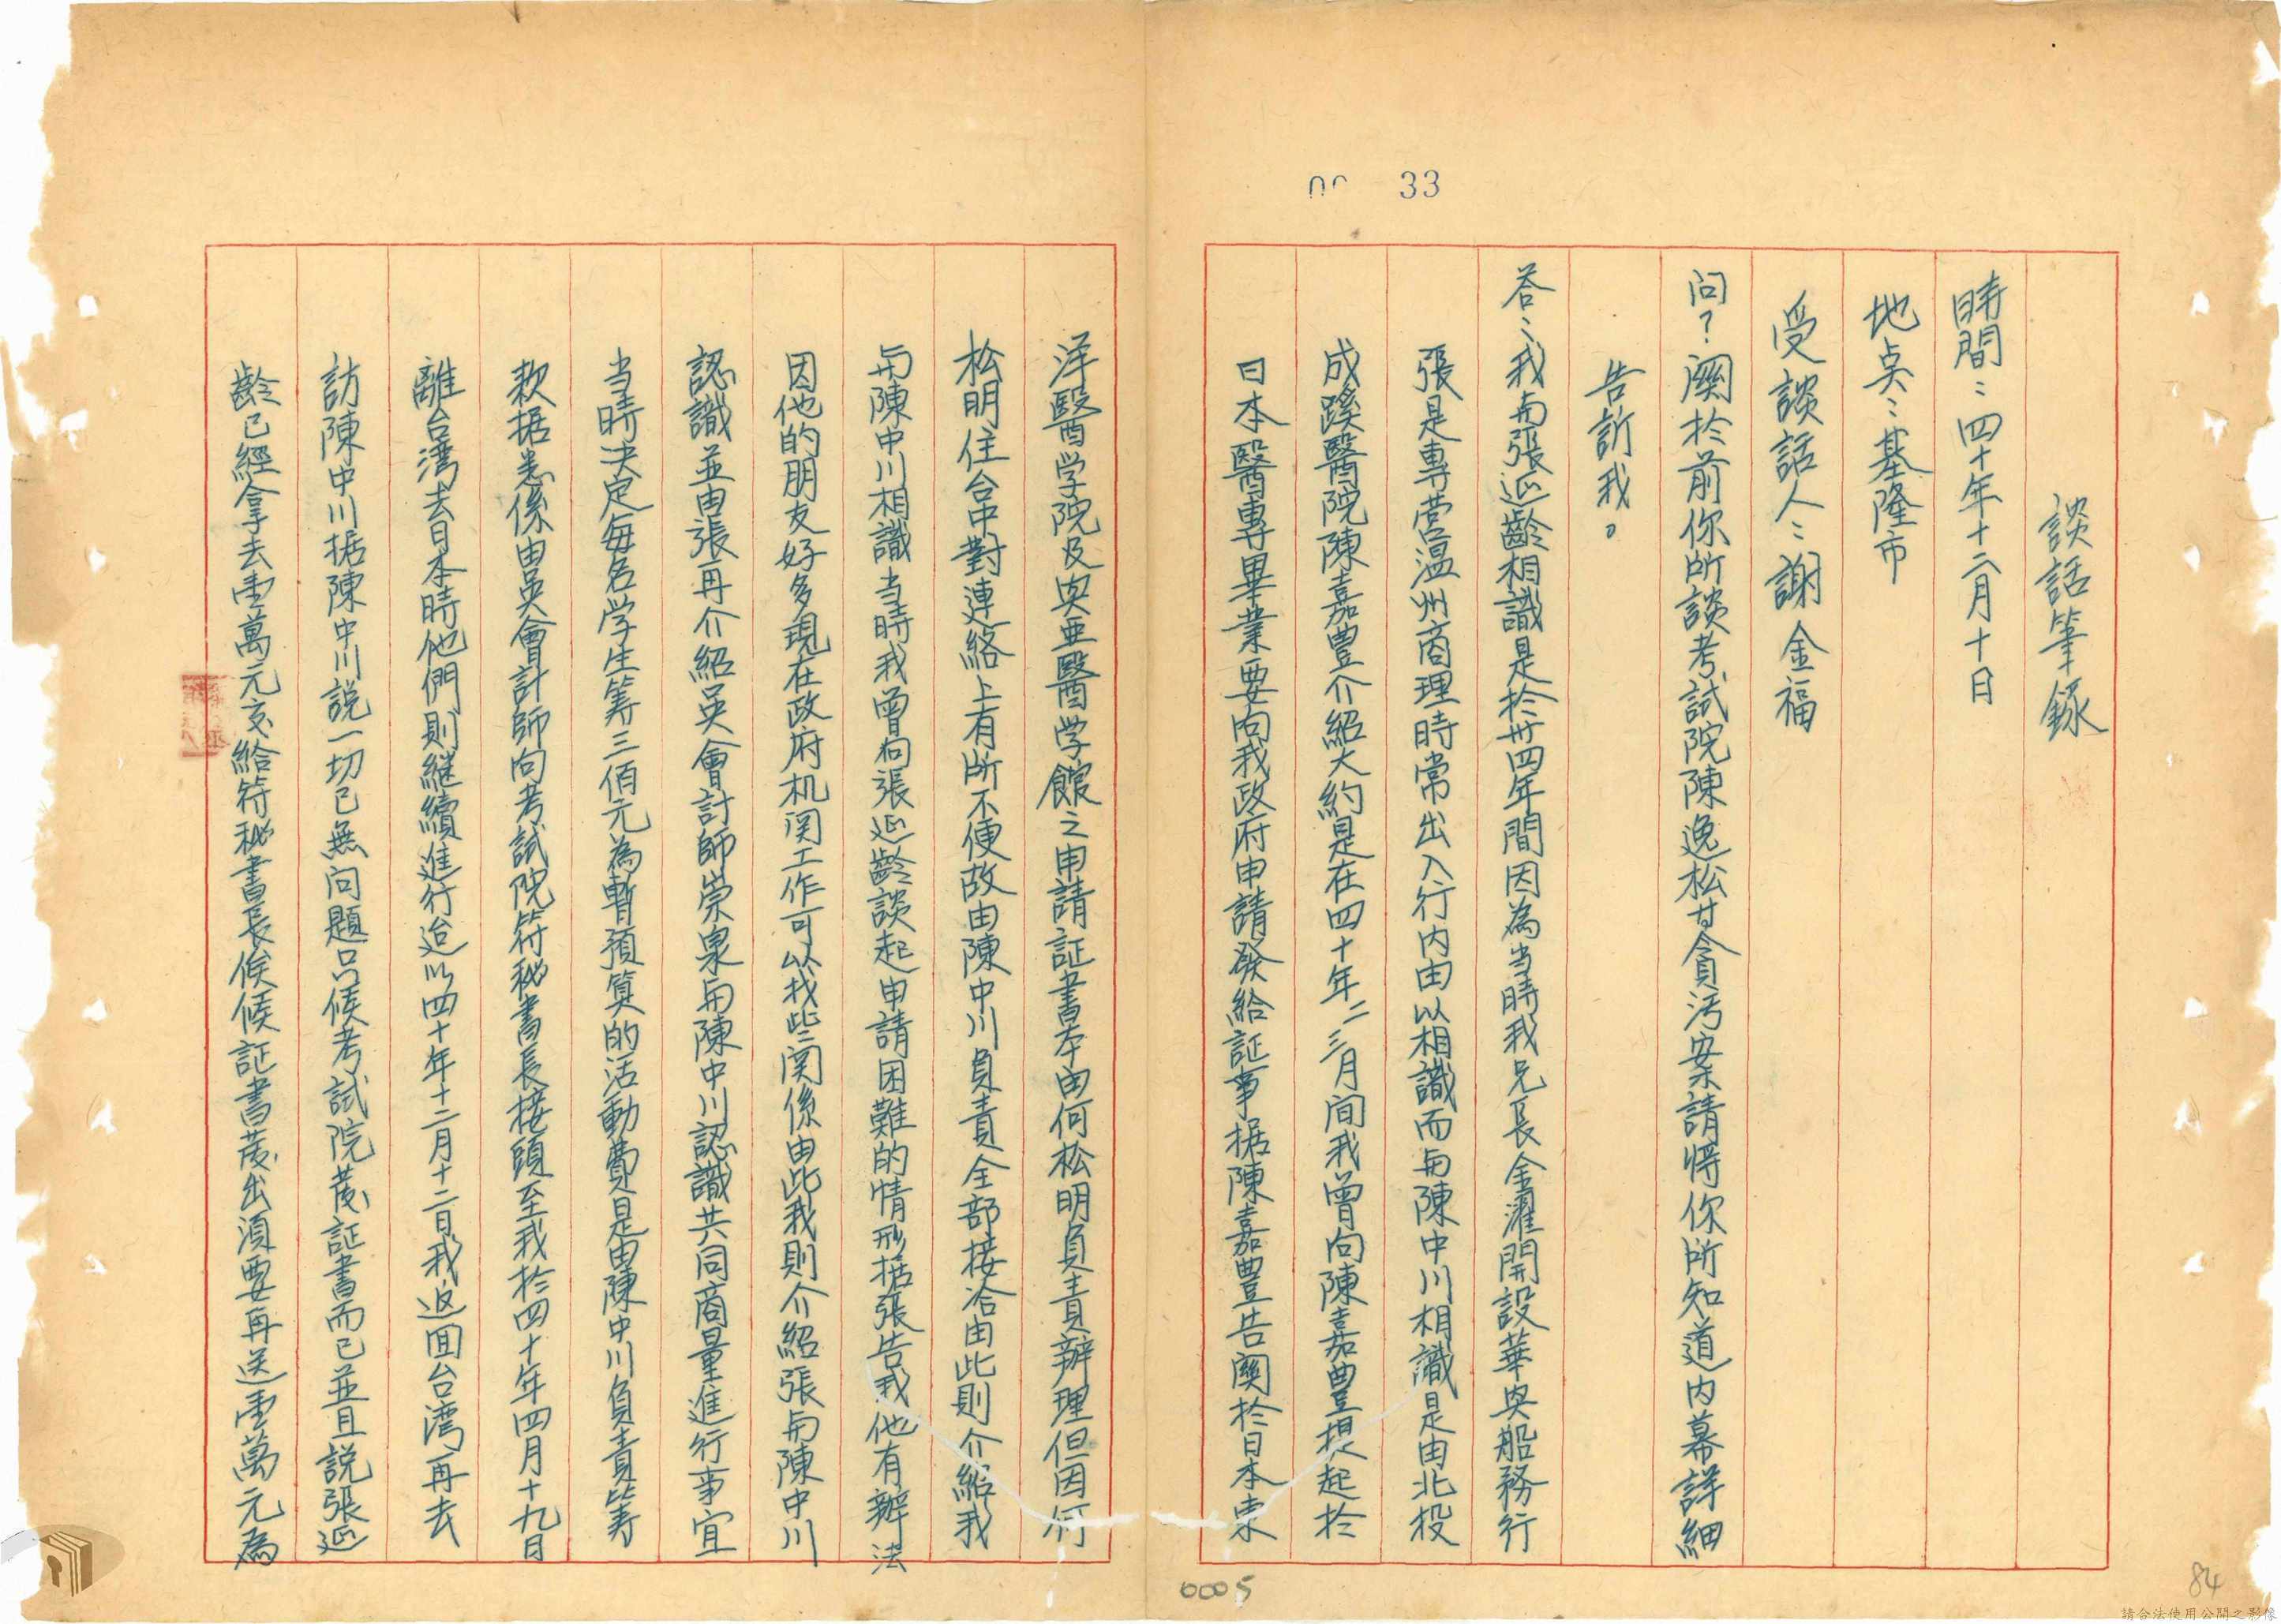 00 33
談話筆録
時間：四十年十二月十日
地点：基隆市
受談話人：謝金福
问？関於前你所談考試院陳逸松甘貪污案請将你所知道内幕詳細
告訴我。
答：我与張延齡相識是於卅四年間因為当時我兄長金濯開設華奥船務行
張是專营温州商理時常出入行内由以相識而与陳中川相識是由北投
成蹊醫院陳嘉豊介紹大約是在四十年二三月间我曾向陳嘉豊提起於
日本醫專畢業要向我政府申請發給証事据陳嘉豊告関於日本東
洋醫学院及奥亜醫学館之申請証書本由何松明負責辦理但因何
松明住台中對連絡上有所不便故由陳中川負責全部接洽由此則介紹我
与陳中川相識当時我曾向張延齡談起申請困難的情形据張告我他有辦法
因他的朋友好多現在政府机関工作可以找些関係由此我則介紹張与陳中川
認識並由張再介紹吳會計師崇泉与陳中川認識共同商量進行事宜
当時决定每名学生筹三佰元為暫預算的活動費是由陳中川負責筹
款据悉係由吳會計師向考試院符秘書長接頭至我於四十年四月十九日
離台湾去日本時他們則継續進行迨以四十年十二月十二日我返囬台湾再去
訪陳中川据陳中川説一切已無问題只候考試院發証書而已並且説張延
齡已經拿去壹萬元交給符秘書長俟候証書發出須要再送壹萬元為
0005
84
請合法使用公開之影像